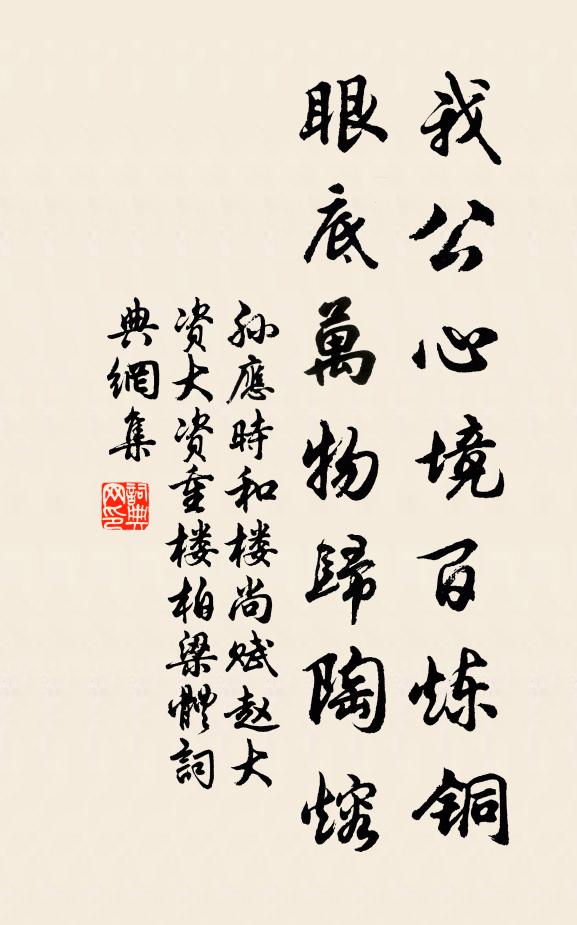 我公心境百炼铜
眼底萬物歸陶熔
孙應時和楼尚赋赵大
资大资重楼柏梁體詞
典網集
詞典
网印